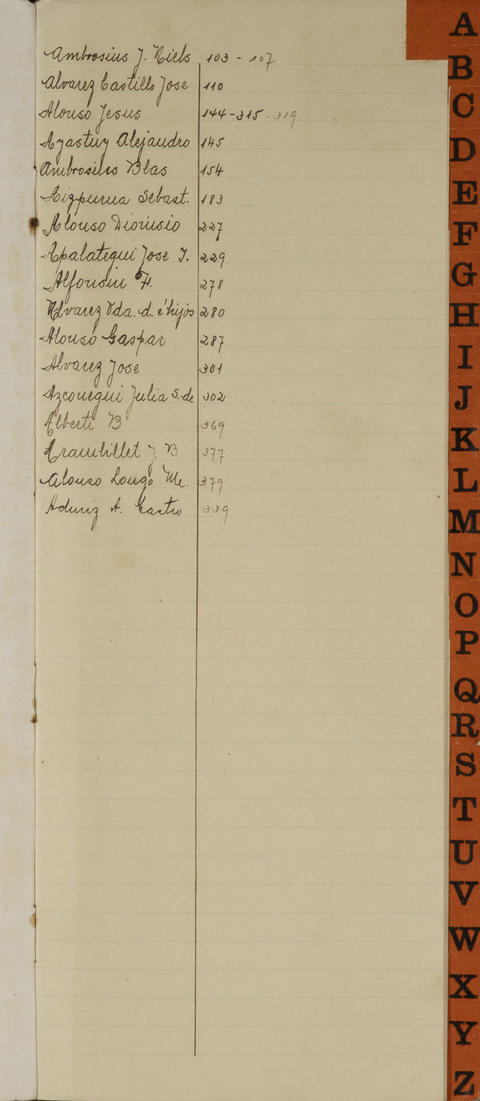 Ambrosius J. Niels 103 - 107
Alvarez Castillo Jose 110
Alonso Jesus 144-315-319
Ayastuy Alejandro 145
Ambrosius Blas 154
Aizpurua Sebast. 183
Alonso Dionisio 227
Apalategui Jose I. 229
Alfonsin F. 278
Alvarez Vda. d. é hijos 280
Alonso Gaspar 287
Alvarez Jose 301
Azconegui Julia S. de 302
Alberti B 369
Arambillet J. B 377
Alonso Longo Me. 379
Aduriz A. Castro 339
A
B
C
D
E
F
G
H
I
J
K
L
M
N
O
P
Q
R
S
T
U
V
W
X
Y
Z